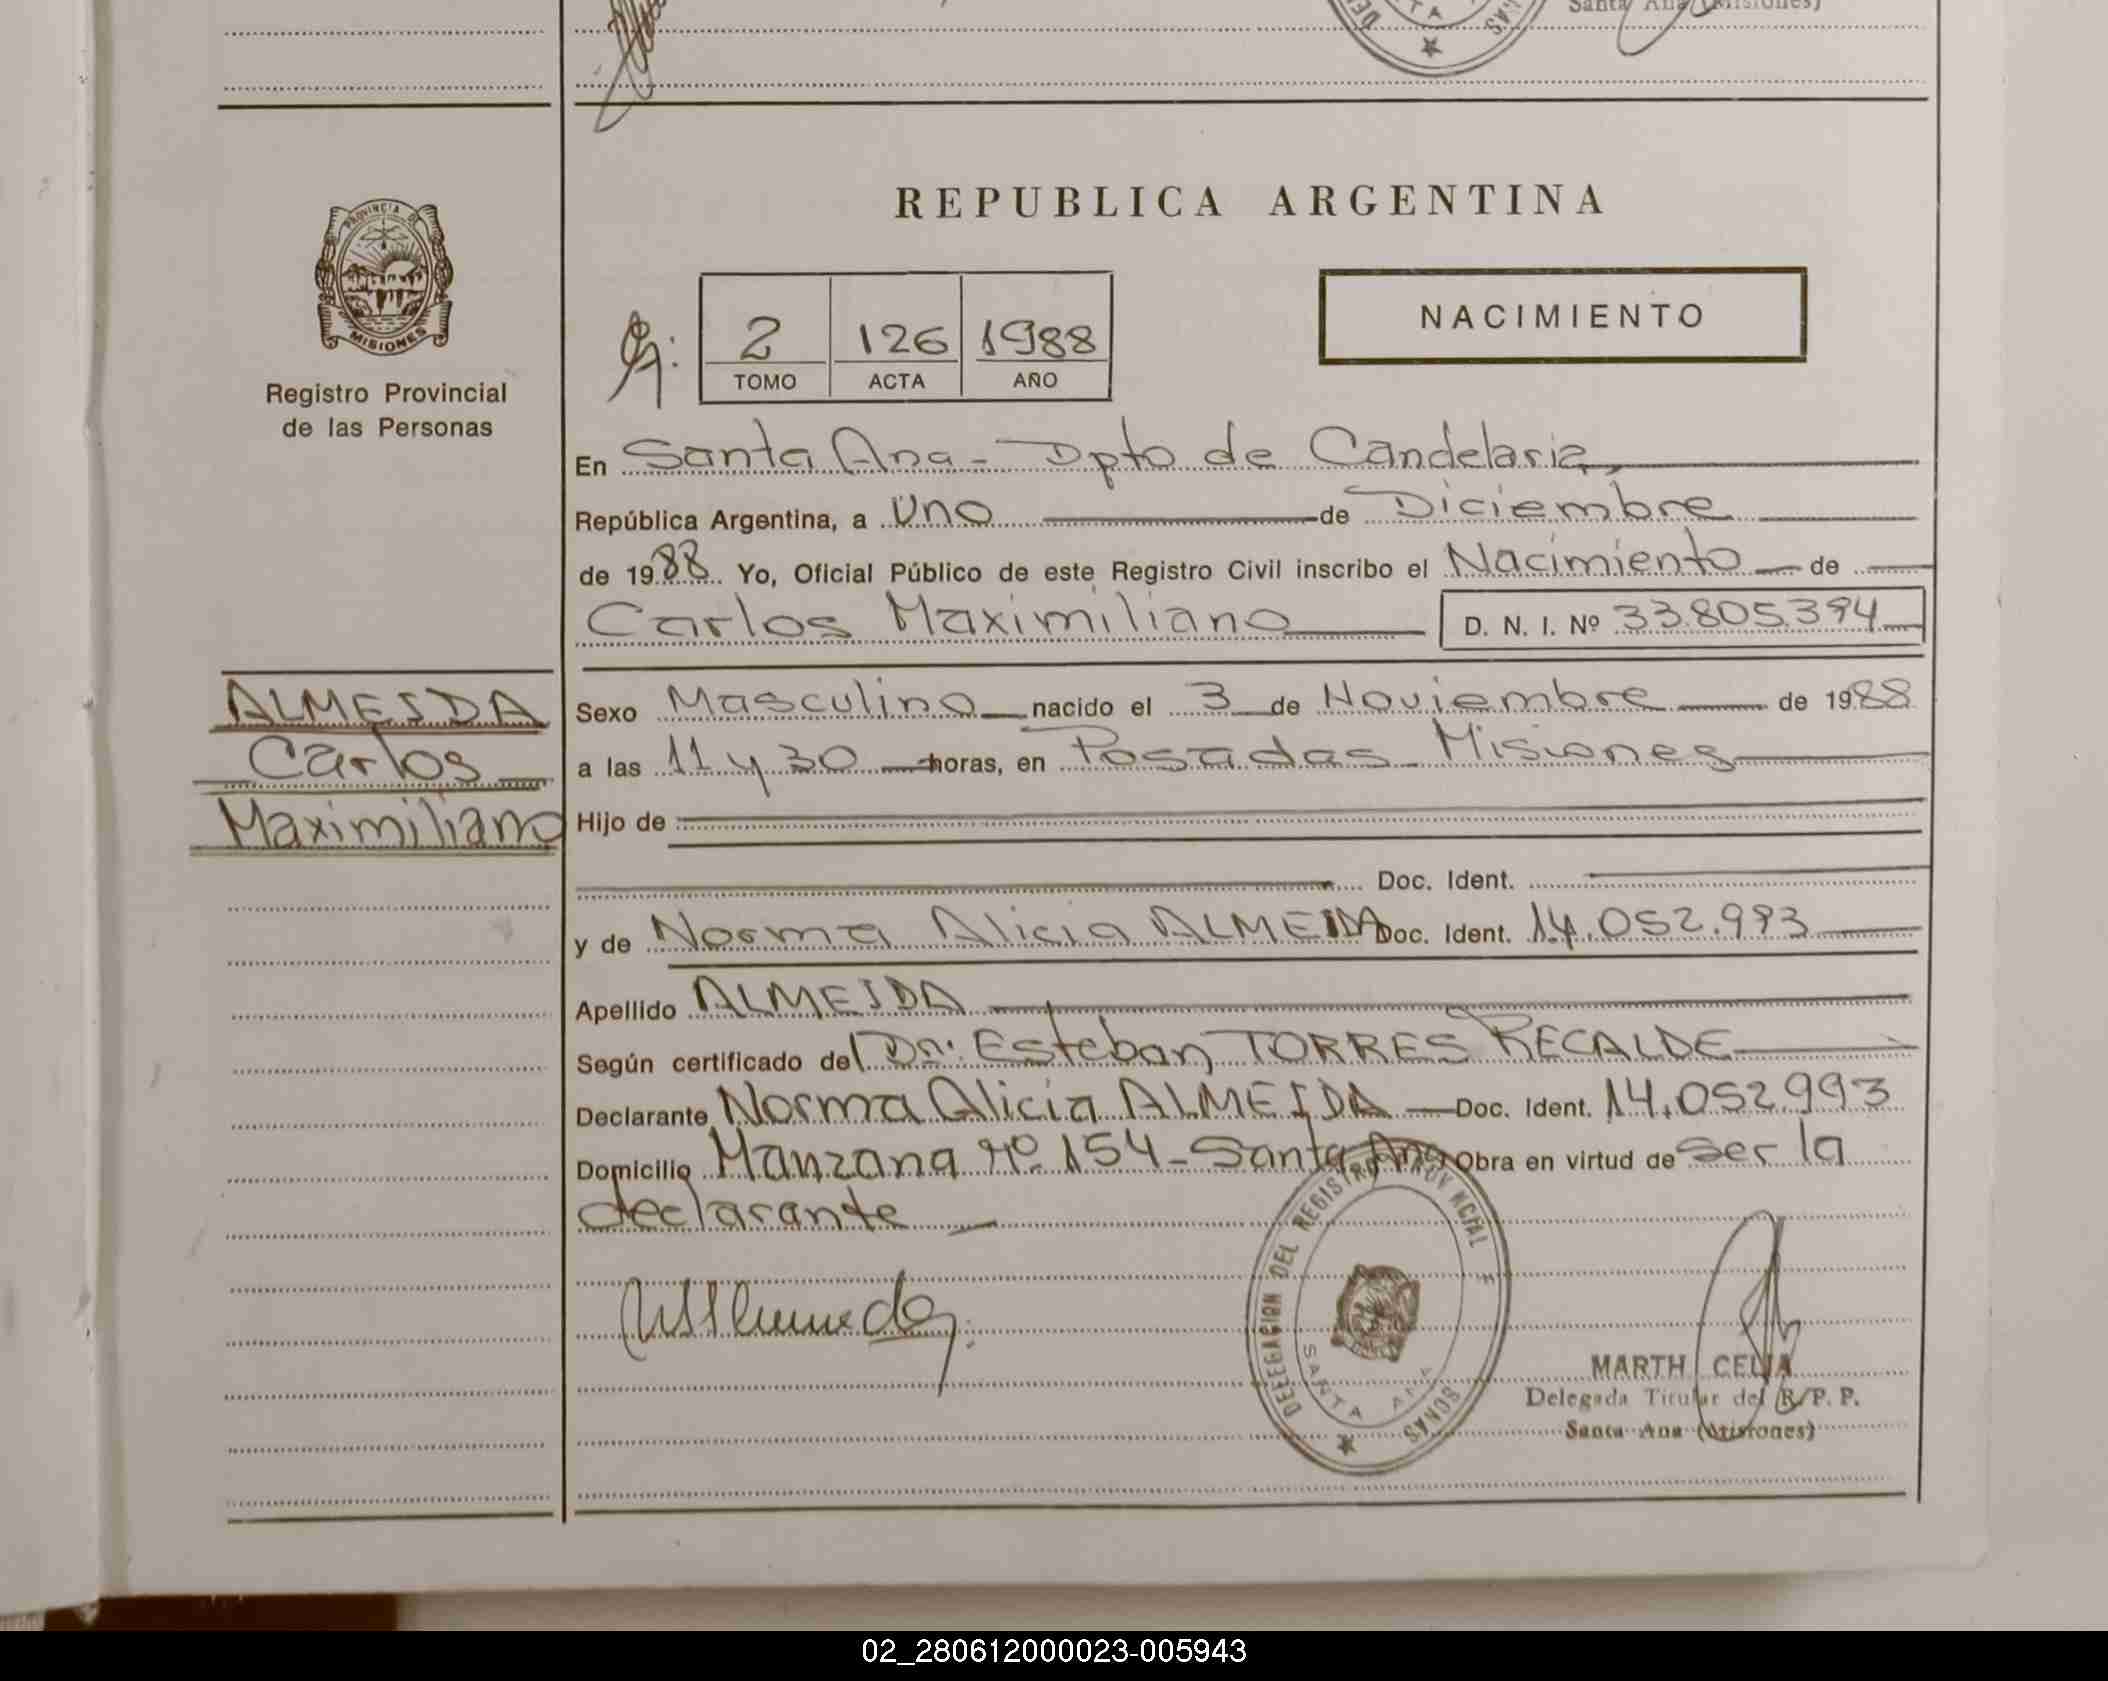 Santa Ana (Misiones)
PROVINCIA DE
MISIONES
Registro Provincial
de las Personas
REPUBLICA ARGENTINA
2 126 1988
TOMO ACTA AÑO
NACIMIENTO
En Santa Ana - Dpto de Candelaria,
República Argentina, a Uno de Diciembre
de 1988 Yo, Oficial Público de este Registro Civil inscribo el Nacimiento de
Carlos Maximiliano D. N. I. Nº 33.805.394
ALMEIDA
Carlos
Maximiliano
Sexo Masculino nacido el 3 de Noviembre de 1988
a las 11 y 30 horas, en Posadas - Misiones
Hijo de
Doc. Ident.
y de Norma Alicia ALMEIDA Doc. Ident. 14.052.993
Apellido ALMEIDA
Según certificado del Dr. Esteban TORRES RECALDE
Declarante Norma Alicia ALMEIDA Doc. Ident. 14.052.993
Domicilio Manzana Nº 154 - Santa Ana Obra en virtud de ser la
declarante
DELEGACION DEL REGISTRO PROVINCIAL
SANTA ANA
MARTH CELIA
Delegada Titular del R. P. P.
Santa Ana (Misiones)
02_280612000023-005943